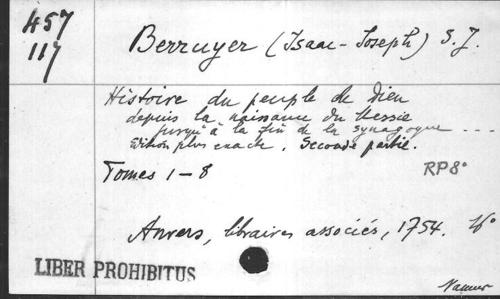 457
117
Berruyer (Isaac-Joseph) S.J.
Histoire du peuple de Dieu
depuis la naissance du Messie
jusqu'à la fin de la synagogue ...
Edition plus exacte. Seconde partie.
Tomes 1-8
RP8°
Anvers, libraires associés, 1754.
LIBER PROHIBITUS
Namur